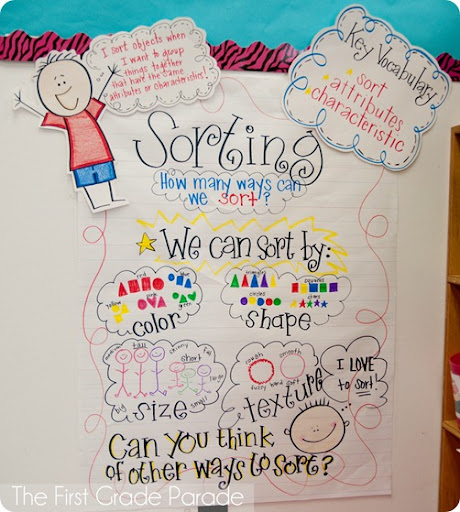 I sort objects when
I want to group
things together
that have the same
attributes or characteristics!
Key Vocabulary
sort
attributes
characteristic
Sorting
How many ways can
we sort?
We can sort by:
red
blue
yellow
green
color
triangles
squares
circles
stars
shape
tall
short
skinny
fat
big
small
large
size
rough
smooth
fuzzy
hard
soft
texture
I LOVE
to sort!
Can you think
of other ways to sort?
The First Grade Parade